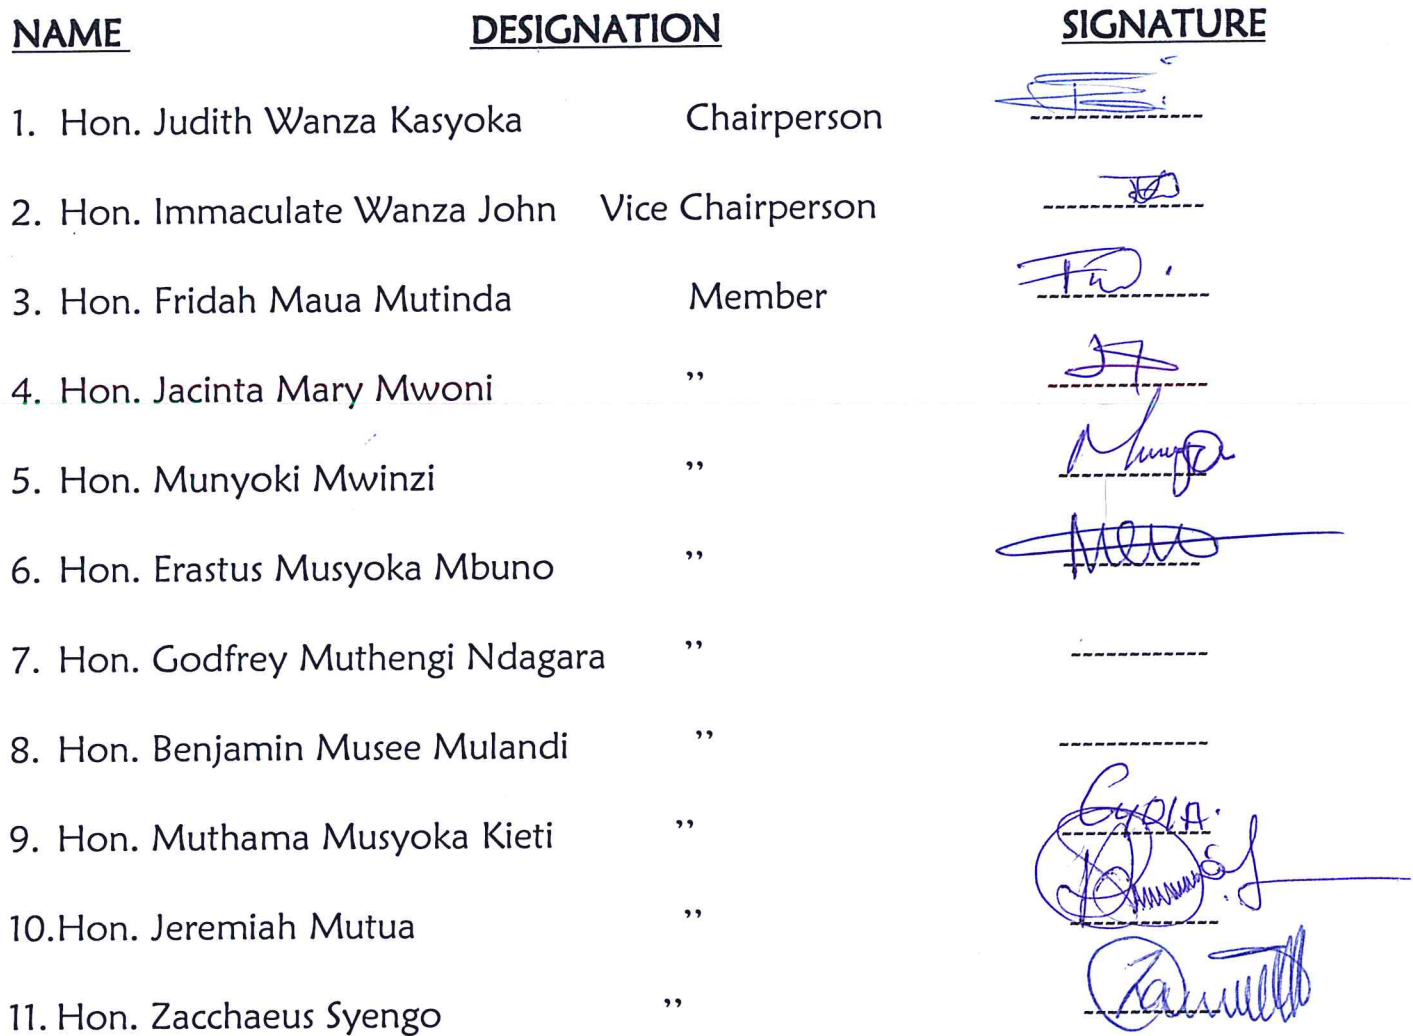 NAME DESIGNATION SIGNATURE
1. Hon. Judith Wanza Kasyoka Chairperson ------------
2. Hon. Immaculate Wanza John Vice Chairperson ------------
3. Hon. Fridah Maua Mutinda Member ------------
4. Hon. Jacinta Mary Mwoni ” ------------
5. Hon. Munyoki Mwinzi ” ------------
6. Hon. Erastus Musyoka Mbuno ” ------------
7. Hon. Godfrey Muthengi Ndagara ” ------------
8. Hon. Benjamin Musee Mulandi ” ------------
9. Hon. Muthama Musyoka Kieti ” ------------
10.Hon. Jeremiah Mutua ” ------------
11. Hon. Zacchaeus Syengo ” ------------